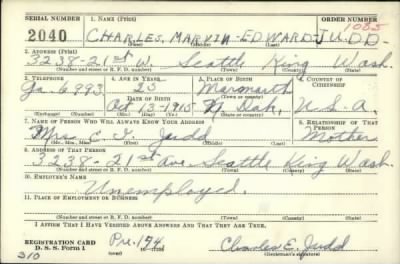 SERIAL NUMBER 1. NAME (Print) ORDER NUMBER
2040 CHARLES MARVIN EDWARD JUDD 1085
(First) (Middle) (Last)
2. ADDRESS (Print)
3238-21st W. Seattle King Wash.
(Number and street or R. F. D. number) (Town) (County) (State)
3. TELEPHONE 4. AGE IN YEARS 5. PLACE OF BIRTH 6. COUNTRY OF CITIZENSHIP
Ga. 6993 25 Marmarth
DATE OF BIRTH
Oct 13-1915 N. Dak. U.S.A.
(Exchange) (Number) (Mo.) (Day) (Yr.) (State or country)
7. NAME OF PERSON WHO WILL ALWAYS KNOW YOUR ADDRESS 8. RELATIONSHIP OF THAT PERSON
Mrs. C. Judd Mother
(Mr., Mrs., Miss) (First) (Middle) (Last)
9. ADDRESS OF THAT PERSON
3238-21st Ave. Seattle King Wash.
(Number and street or R. F. D. number) (Town) (County) (State)
10. EMPLOYER'S NAME
Unemployed.
11. PLACE OF EMPLOYMENT OR BUSINESS
(Number and street or R. F. D. number) (Town) (County) (State)
I AFFIRM THAT I HAVE VERIFIED ABOVE ANSWERS AND THAT THEY ARE TRUE.
REGISTRATION CARD Pre. 174 Charles E. Judd
D. S. S. Form 1 (Registrant's signature)
310